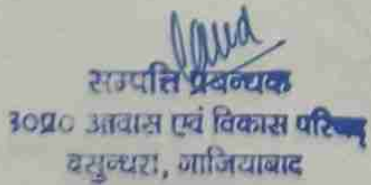 सम्पत्ति प्रबन्धक
उ०प्र० आवास एवं विकास परिषद्
वसुन्धरा, गाजियाबाद